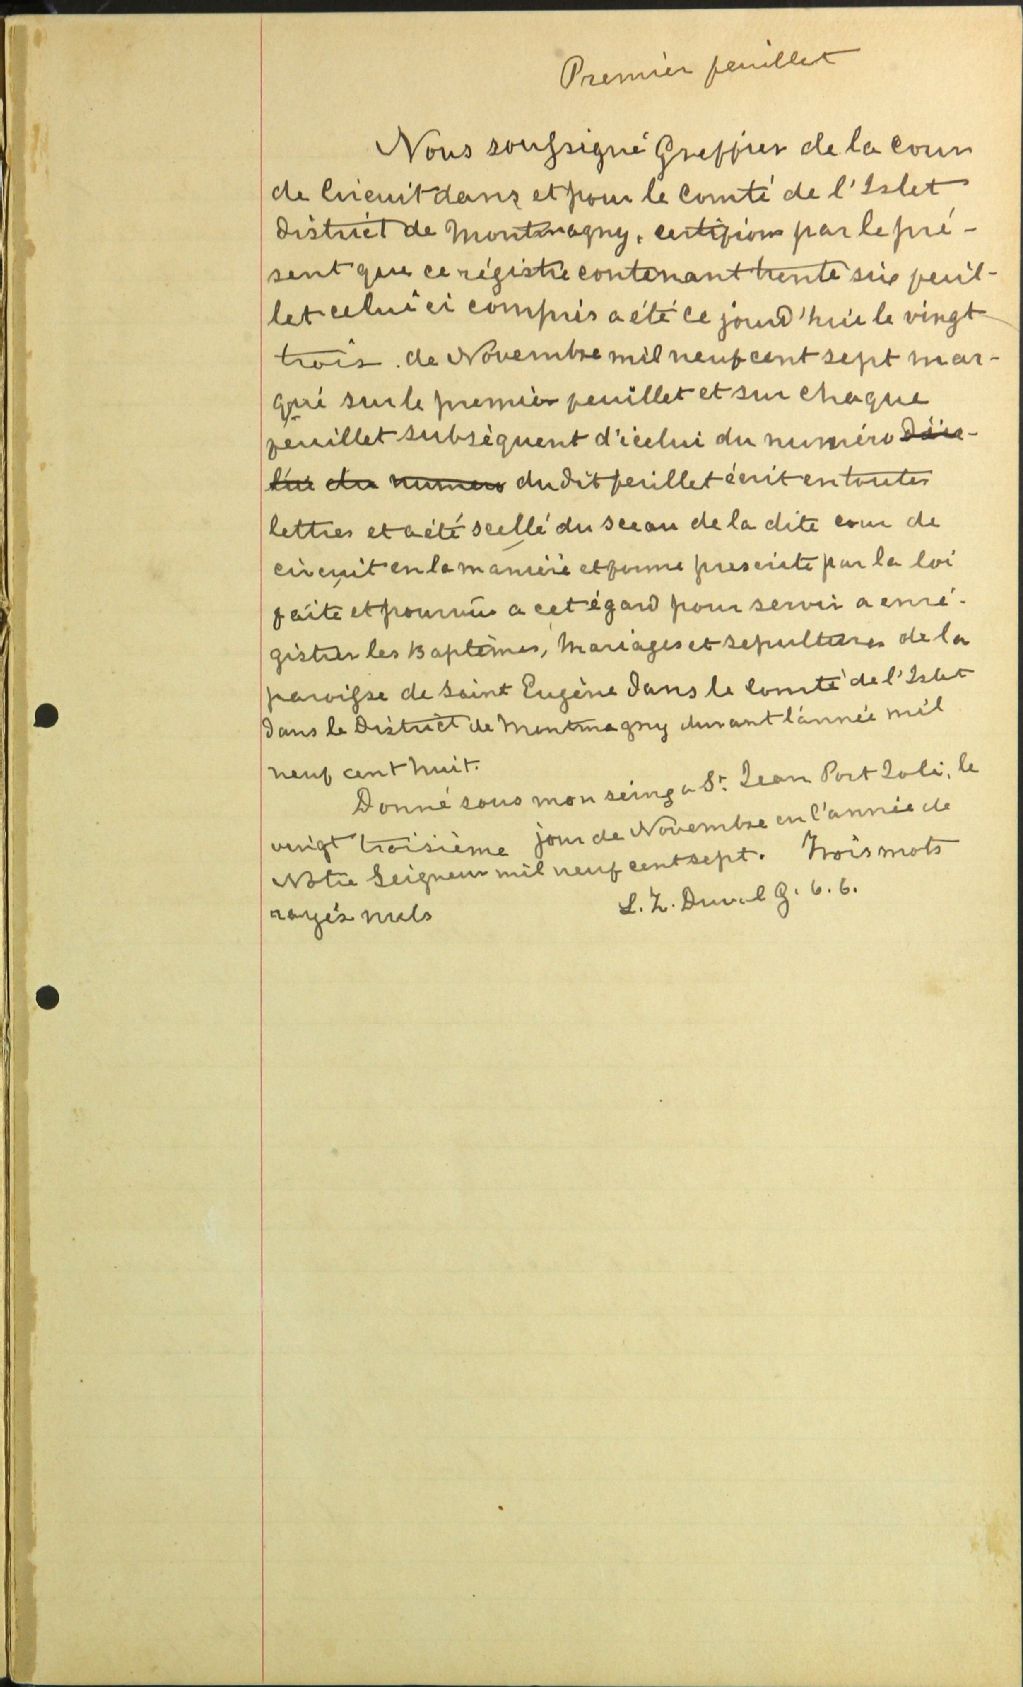 Premier feuillet
Nous soussigné Greffier de la Cour
de Circuit dans et pour le Comté de l'Islet
District de Montmagny, certifions par le pré-
sent que ce régistre contenant trente six feuil-
let celui ci compris a été ce jourd'hui le vingt
trois de Novembre mil neuf cent sept mar-
qué sur le premier feuillet et sur chaque
feuillet subséquent d'icelui du numéro d'ice-
lui du numero du dit feuillet écrit en toutes
lettres et a été scellé du sceau de la dite cour de
circuit en la manière et forme prescrite par la loi
faite et pourvue a cet égard pour servir a enré-
gistrer les Baptêmes, Mariages et sepultures de la
paroisse de Saint Eugène dans le Comté de l'Islet
dans le District de Montmagny durant l'année mil
neuf cent huit.
Donné sous mon seing a St. Jean Port Joli, le
vingt troisième jour de Novembre en l'année de
Notre Seigneur mil neuf cent sept. Trois mots
rayés nuls L. Z. Duval G. C. C.